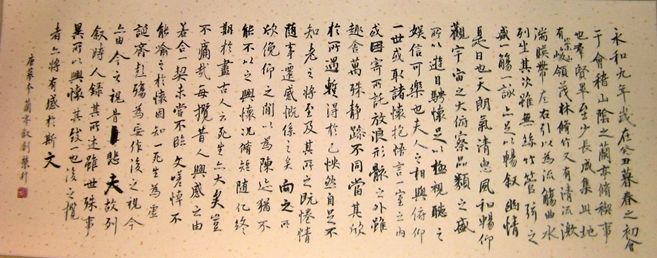 永和九年歲在癸丑暮春之初會
于會稽山陰之蘭亭脩稧事
也羣賢畢至少長咸集此地
有崇山峻領茂林脩竹又有清流激
湍暎帶左右引以為流觴曲水
列坐其次雖無絲竹管弦之
盛一觴一詠亦足以暢敘幽情
是日也天朗氣清惠風和暢仰
觀宇宙之大俯察品類之盛
所以遊目騁懷足以極視聽之
娛信可樂也夫人之相與俯仰
一世或取諸懷抱悟言一室之內
或因寄所託放浪形骸之外雖
趣舍萬殊靜躁不同當其欣
於所遇暫得於己怏然自足不
知老之將至及其所之既惓情
隨事遷感慨係之矣向之所
欣俛仰之間以為陳迹猶不
能不以之興懷況脩短隨化終
期於盡古人云死生亦大矣豈
不痛哉每攬昔人興感之由
若合一契未嘗不臨文嗟悼不
能喻之於懷固知一死生為虛
誕齊彭殤為妄作後之視今
亦由今之視昔悲夫故列
敘時人錄其所述雖世殊事
異所以興懷其致一也後之攬
者亦將有感於斯文
唐摹本蘭亭敘